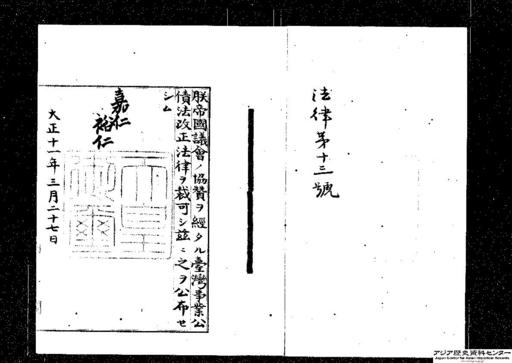 法律第十三號
朕帝國議會ノ協贊ヲ經タル臺灣事業公
債法改正法律ヲ裁可シ茲ニ之ヲ公布セ
シム
嘉仁
裕仁
天皇
御璽
大正十一年三月二十七日
アジア歴史資料センター
Japan Center for Asian Historical Records